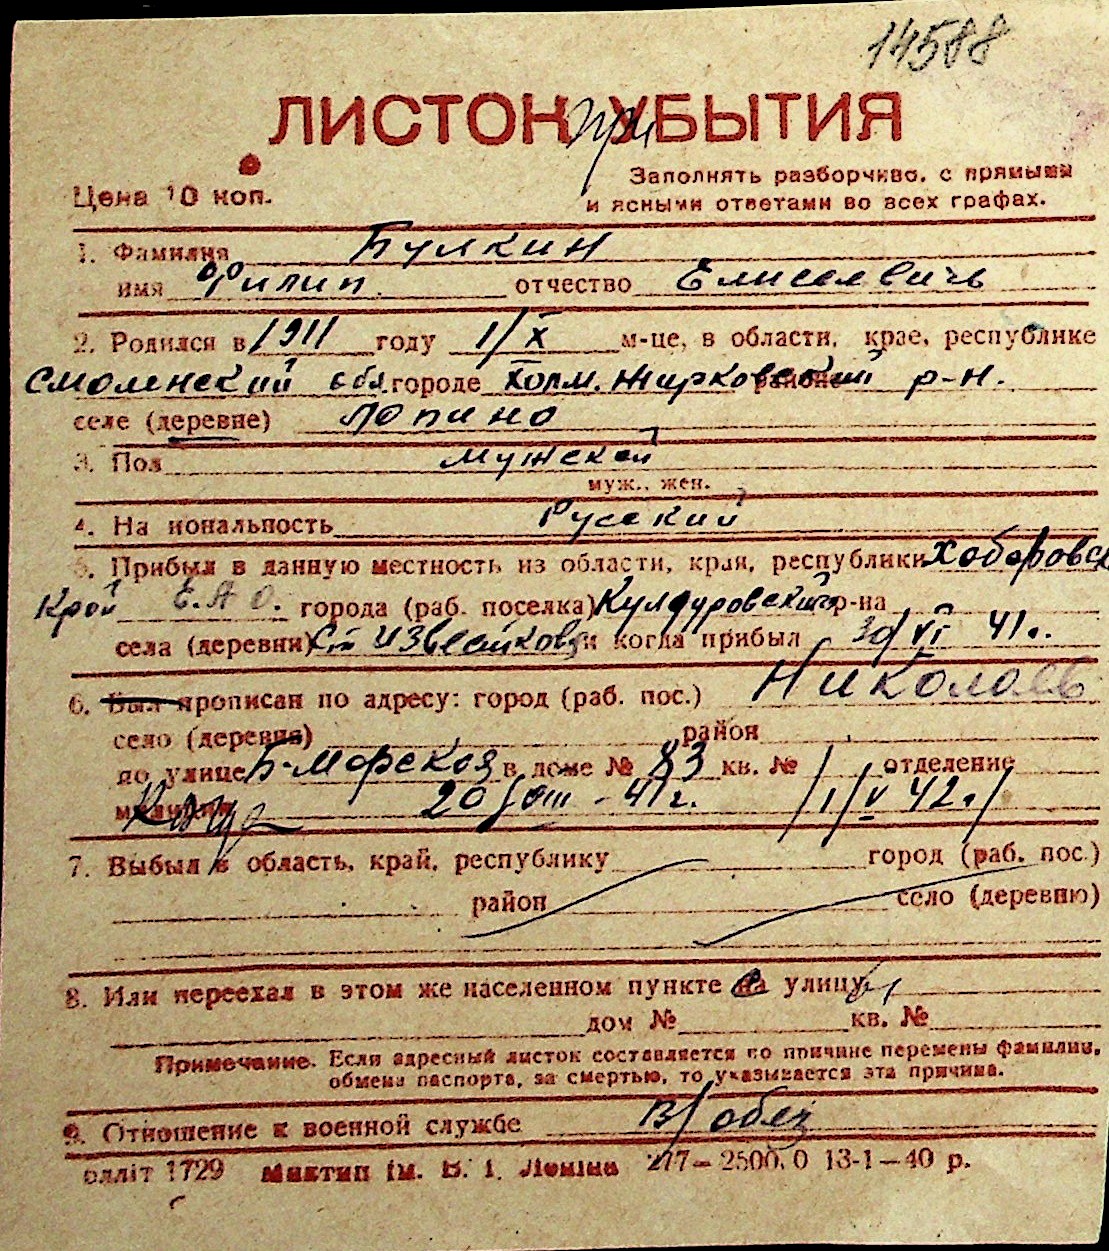 14588
ЛИСТОК при УБЫТИЯ
Цена 10 коп.
Заполнять разборчиво, с прямыми
и ясными ответами во всех графах.
1. Фамилия Булкин
имя Филип отчество Елисеевичь
2. Родился в 1911 году 1/X м-це, в области, крае, республике
Смоленский обл. городе Холм. Жирковский районе р-н.
селе (деревне) Лопино
3. Пол мужской
муж., жен.
4. Национальность Русский
5. Прибыл в данную местность из области, края, республики Хабаровск
Край Е.А.О. города (раб. поселка) Кулдуровский р-на
села (деревни) ст Известковая и когда прибыл 30/VI 41г.
6. Был прописан по адресу: город (раб. пос.) Николаев
село (деревня) район
по улице Б-Морская в доме № 83 кв. № отделение
милиции 20/VIII-41г. 1/V 42г.
7. Выбыл в область, край, республику город (раб. пос.)
район село (деревню)
8. Или переехал в этом же населенном пункте на улицу
дом № кв. №
Примечание. Если адресный листок составляется по причине перемены фамилии,
обмена паспорта, за смертью, то указывается эта причина.
9. Отношение к военной службе в/обяз
олліт 1729 Миктип ім. В. І. Леніна 277—2500.0 13-1—40 р.